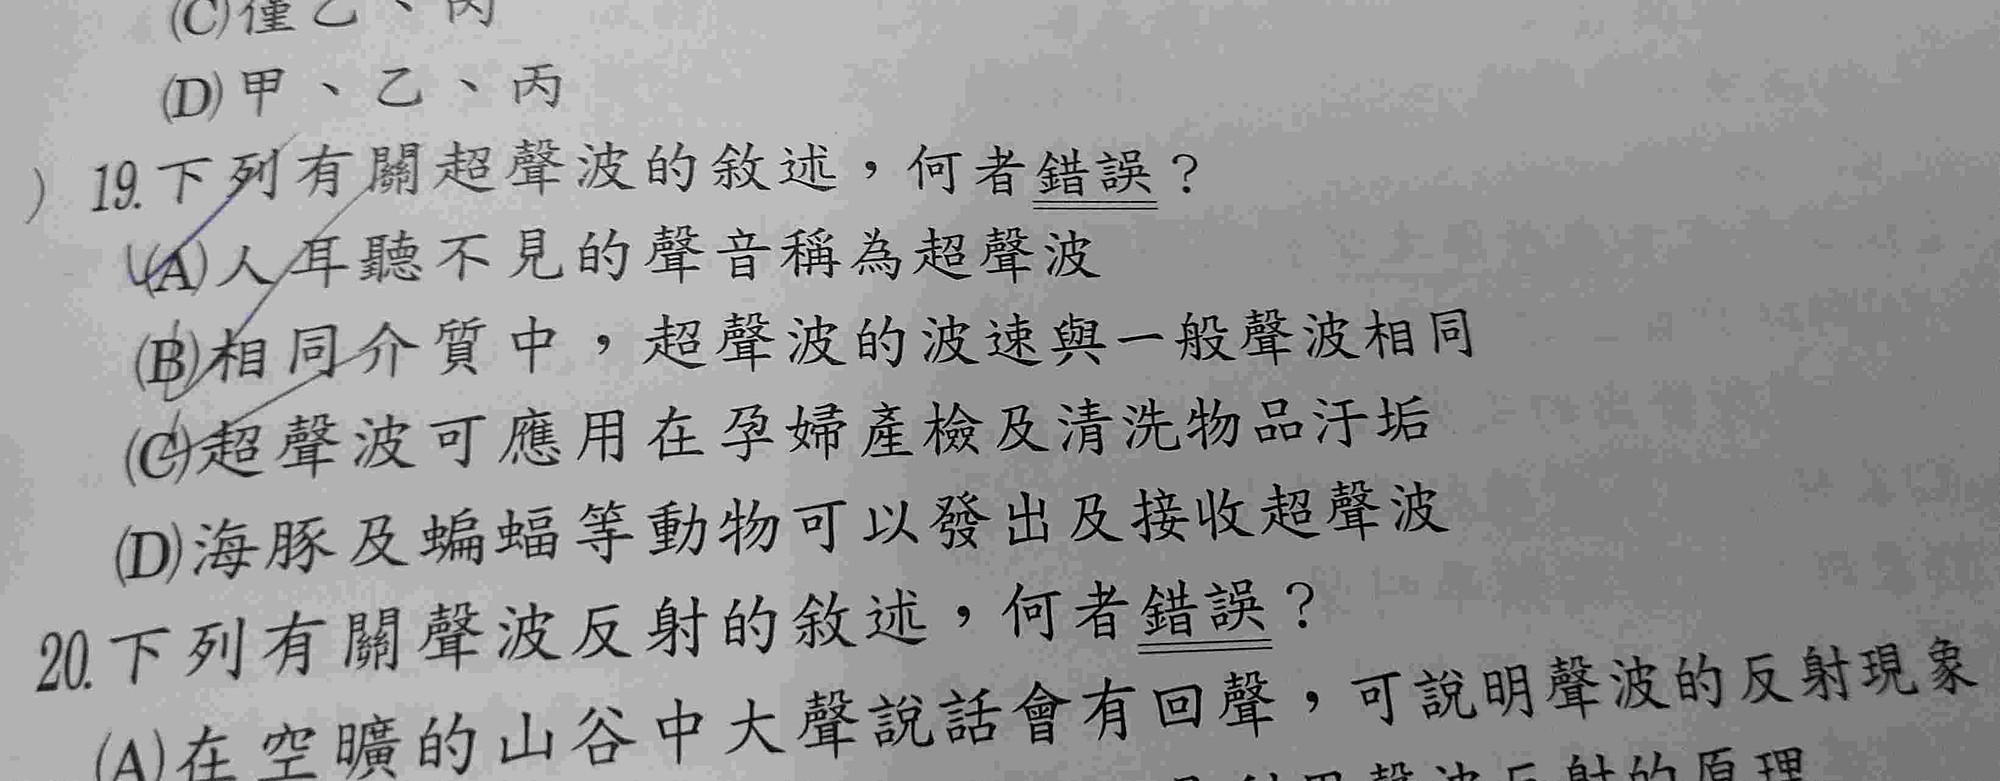 (C)僅乙、丙
(D)甲、乙、丙
) 19.下列有關超聲波的敘述，何者錯誤？
(A)人耳聽不見的聲音稱為超聲波
(B)相同介質中，超聲波的波速與一般聲波相同
(C)超聲波可應用在孕婦產檢及清洗物品汙垢
(D)海豚及蝙蝠等動物可以發出及接收超聲波
20.下列有關聲波反射的敘述，何者錯誤？
(A)在空曠的山谷中大聲說話會有回聲，可說明聲波的反射現象
聲波反射的原理